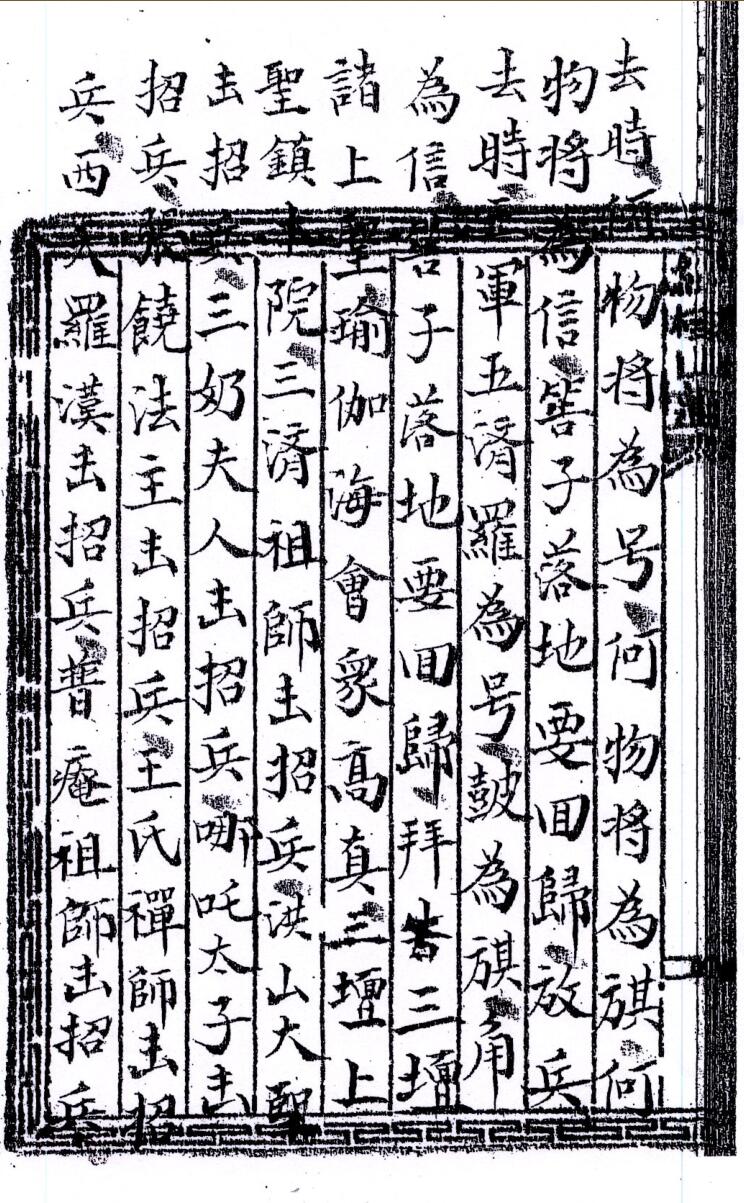 去時何物將為号何物將為旗何
物將為信筶子落地要回歸放兵
去時三軍五濟羅為号皷為旗角
為信筶子落地要回歸拜告三壇
諸上聖瑜伽海會衆高真三壇上
聖鎮十院三濟祖師去招兵洪山大聖
去招兵三奶夫人去招兵哪吒太子去
招兵張饒法主去招兵王氏禪師去招
兵西天羅漢去招兵普庵祖師去招兵